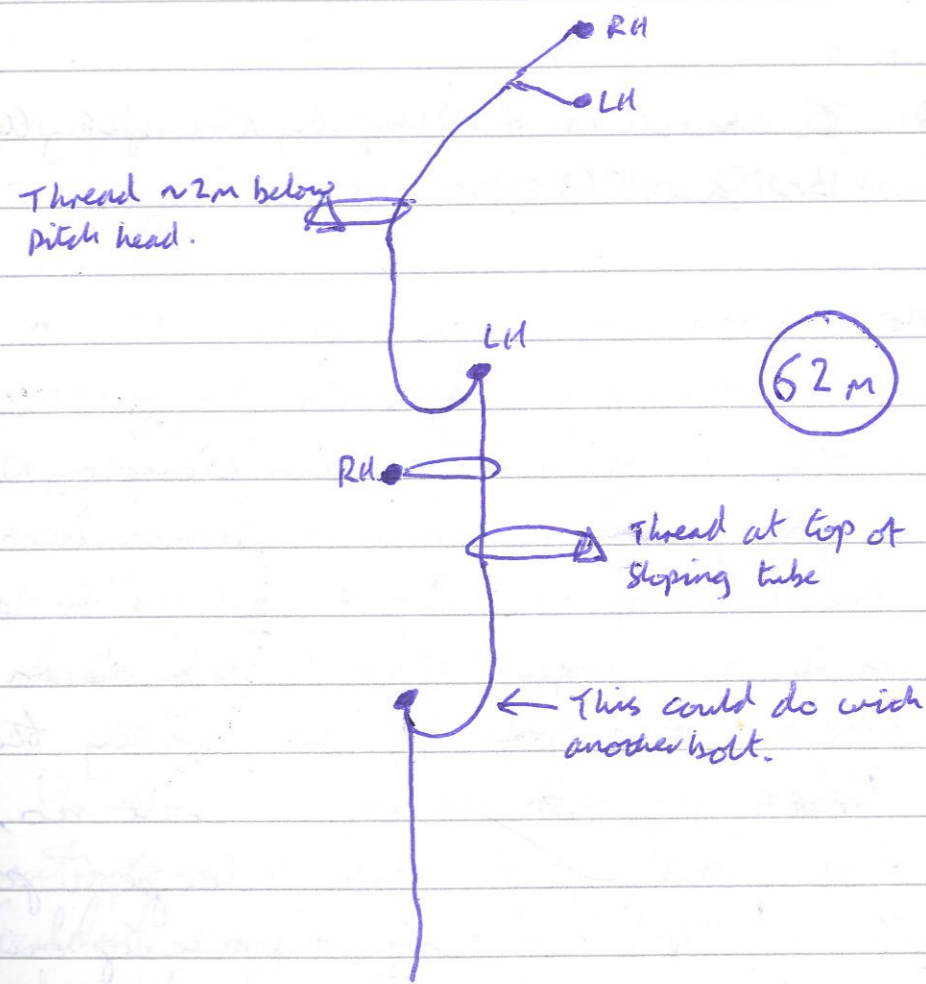 RH
LH
Thread ~2m below
pitch head.
LH
62m
RH
Thread at top of
sloping tube
← This could do with
another bolt.